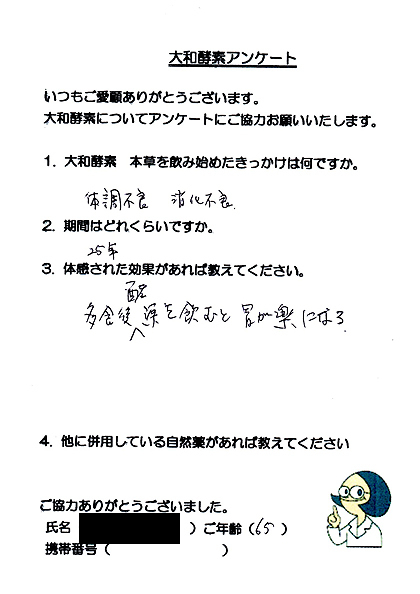 大和酵素アンケート
いつもご愛顧ありがとうございます。
大和酵素についてアンケートにご協力お願いいたします。
1. 大和酵素 本草を飲み始めたきっかけは何ですか。
体調不良 消化不良
2. 期間はどれくらいですか。
25年
3. 体感された効果があれば教えてください。
多食後 薬を飲むと胃が楽になる
4. 他に併用している自然薬があれば教えてください
ご協力ありがとうございました。
氏名 ）ご年齢（65）
携帯番号（ ）